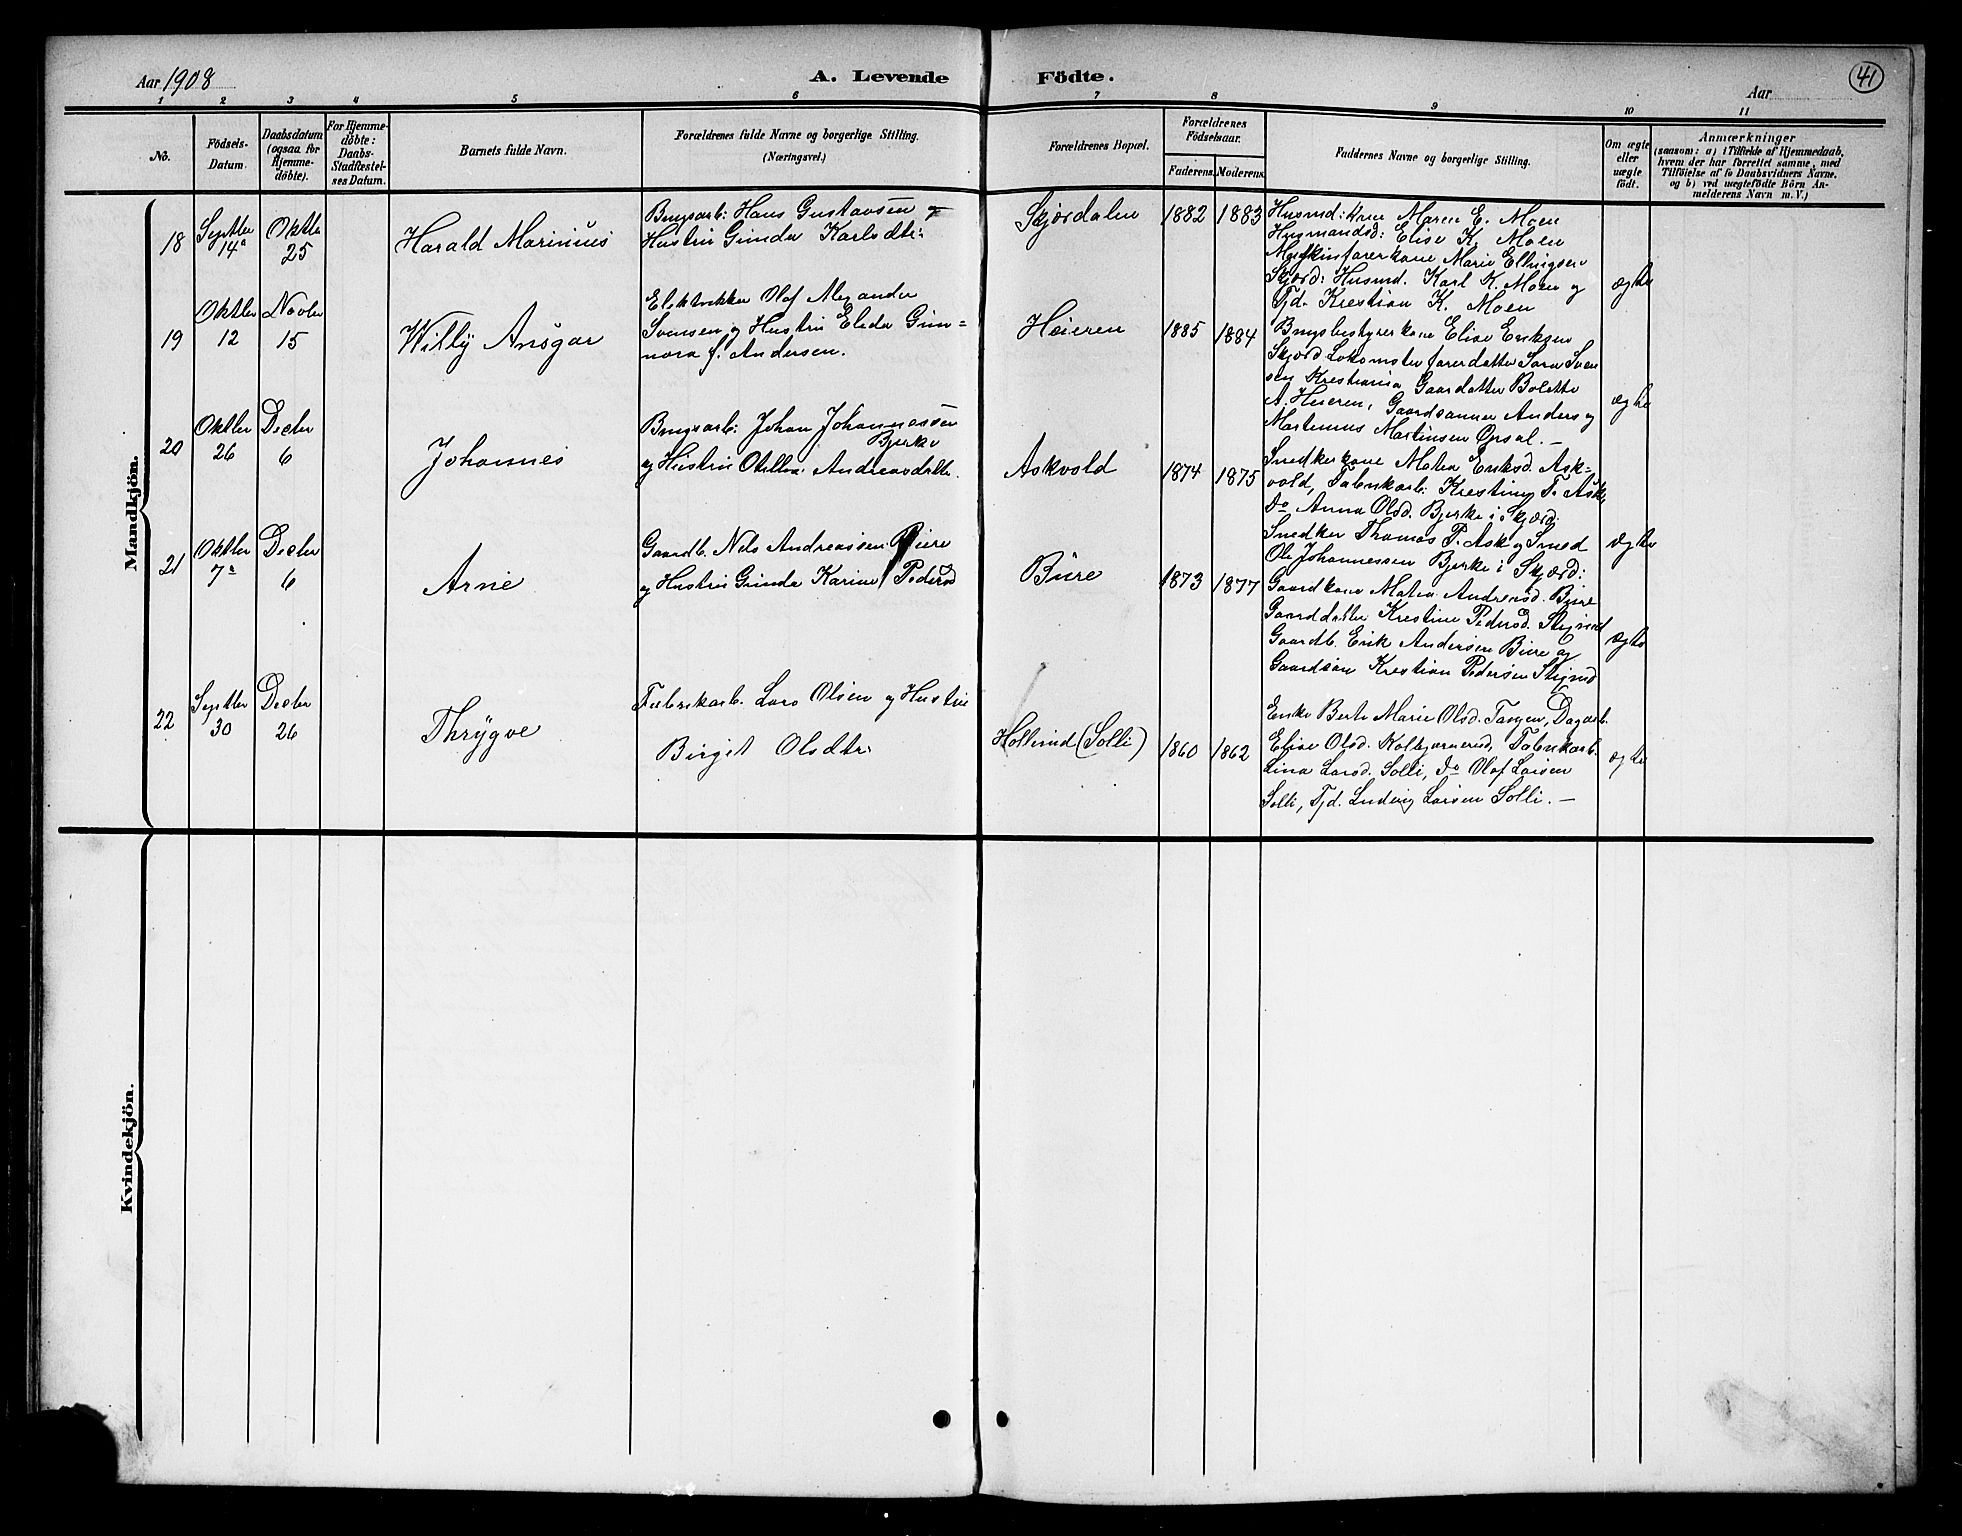 Aar 1908
A. Levende Födte.
41
Aar
1 2 3 4 5 6 7 8 9 10 11
No.
Födsels-
Datum.
Daabsdatum
(ogsaa for
Hjemme-
döbte).
For Hjemme-
döbte:
Daabs-
Stadfæstel-
ses Datum.
Barnets fulde Navn.
Forældrenes fulde Navne og borgerlige Stilling.
(Næringsvei.)
Forældrenes Bopæl.
Forældrenes
Födselsaar.
Faderens. Moderens.
Faddernes Navne og borgerlige Stilling.
Om ægte
eller
uægte
födt.
Anmærkninger
(saasom: a) i Tilfælde af Hjemmedaab,
hvem der har forrettet samme, med
Tilföielse af to Daabsvidners Navne.
og b) ved uægtefödte Börn An-
melderens Navn m. V.)
Mandkjön.
18
Septbr
14de
Oktbr
25
Harald Marinius
Brugsarb: Hans Gustavsen og
Hustru Gunda Karlsdtr:
Skjørdalen
1882
1883
Husmd: kone Maren E. Moen
Husmandsd: Elise K. Moen
Maskinførerkone Marie Ellingsen
Skjærd: Husmd. Karl K. Moen og
Tjd. Krestian K. Moen
ægte
19
Oktbr
12
Novbr
15
Willy Ansgar
Elektriker Olaf Alexander
Svensen og Hustru Elida Gun=
nora f. Andersen.
Høieren
1885
1884
Brugsbestyrerkone Elise Eriksen
Skjærd Lokomotivførerdatter Sara Sven
sen Krestiania Gaardatter Bolette
A. Hieren, Gaardsønner Anders og
Martinius Martinsen Ørsal. —
ægte
20
Oktbr
26
Decbr
6
Johannes
Brugsarb: Johan Johannessen
Bjerke
og Hustru Otillia Andreasdatte.
Askvold
1874
1875
Snedkerkone Matea Eriksd. Ask=
vold, Fabrikarb: Krestine T. Ask,
Do Anna Olsd. Bjerke i Skjærd.
Snedker Thomas P. Ask og Smed
Ole Johannessen Bjerke i Skjærd:
ægte
21
Oktbr
7de
Decbr
6
Arne
Gaardb. Nels Andreassen Biere
og Hustru Gunda Karine Pedersd
Büre
1873
1877
Gaardkone Matea Andreasd. Bure
Gaarddatter Krestine Pedersd. Stigsrud
Gaardb. Erik Andersen Bure og
Gaardsøn Krestian Pedersen Stigsrud
ægte
22
Septbr
30
Decbr
26
Thrygve
Fabrikarb. Lars Olsen og Hustru
Birgit Olsdtr:
Hollerud (Solli)
1860
1862
Enke Berte Marie Olsd. Tangen, Dagarb.
Elise Olsd. Kolbjørnerud, Fabrikarb.
Lina Larsd. Solli, Do Olaf Larsen
Solli, Tjd. Ludvig Larsen Solli. —
ægte
Kvindekjön.